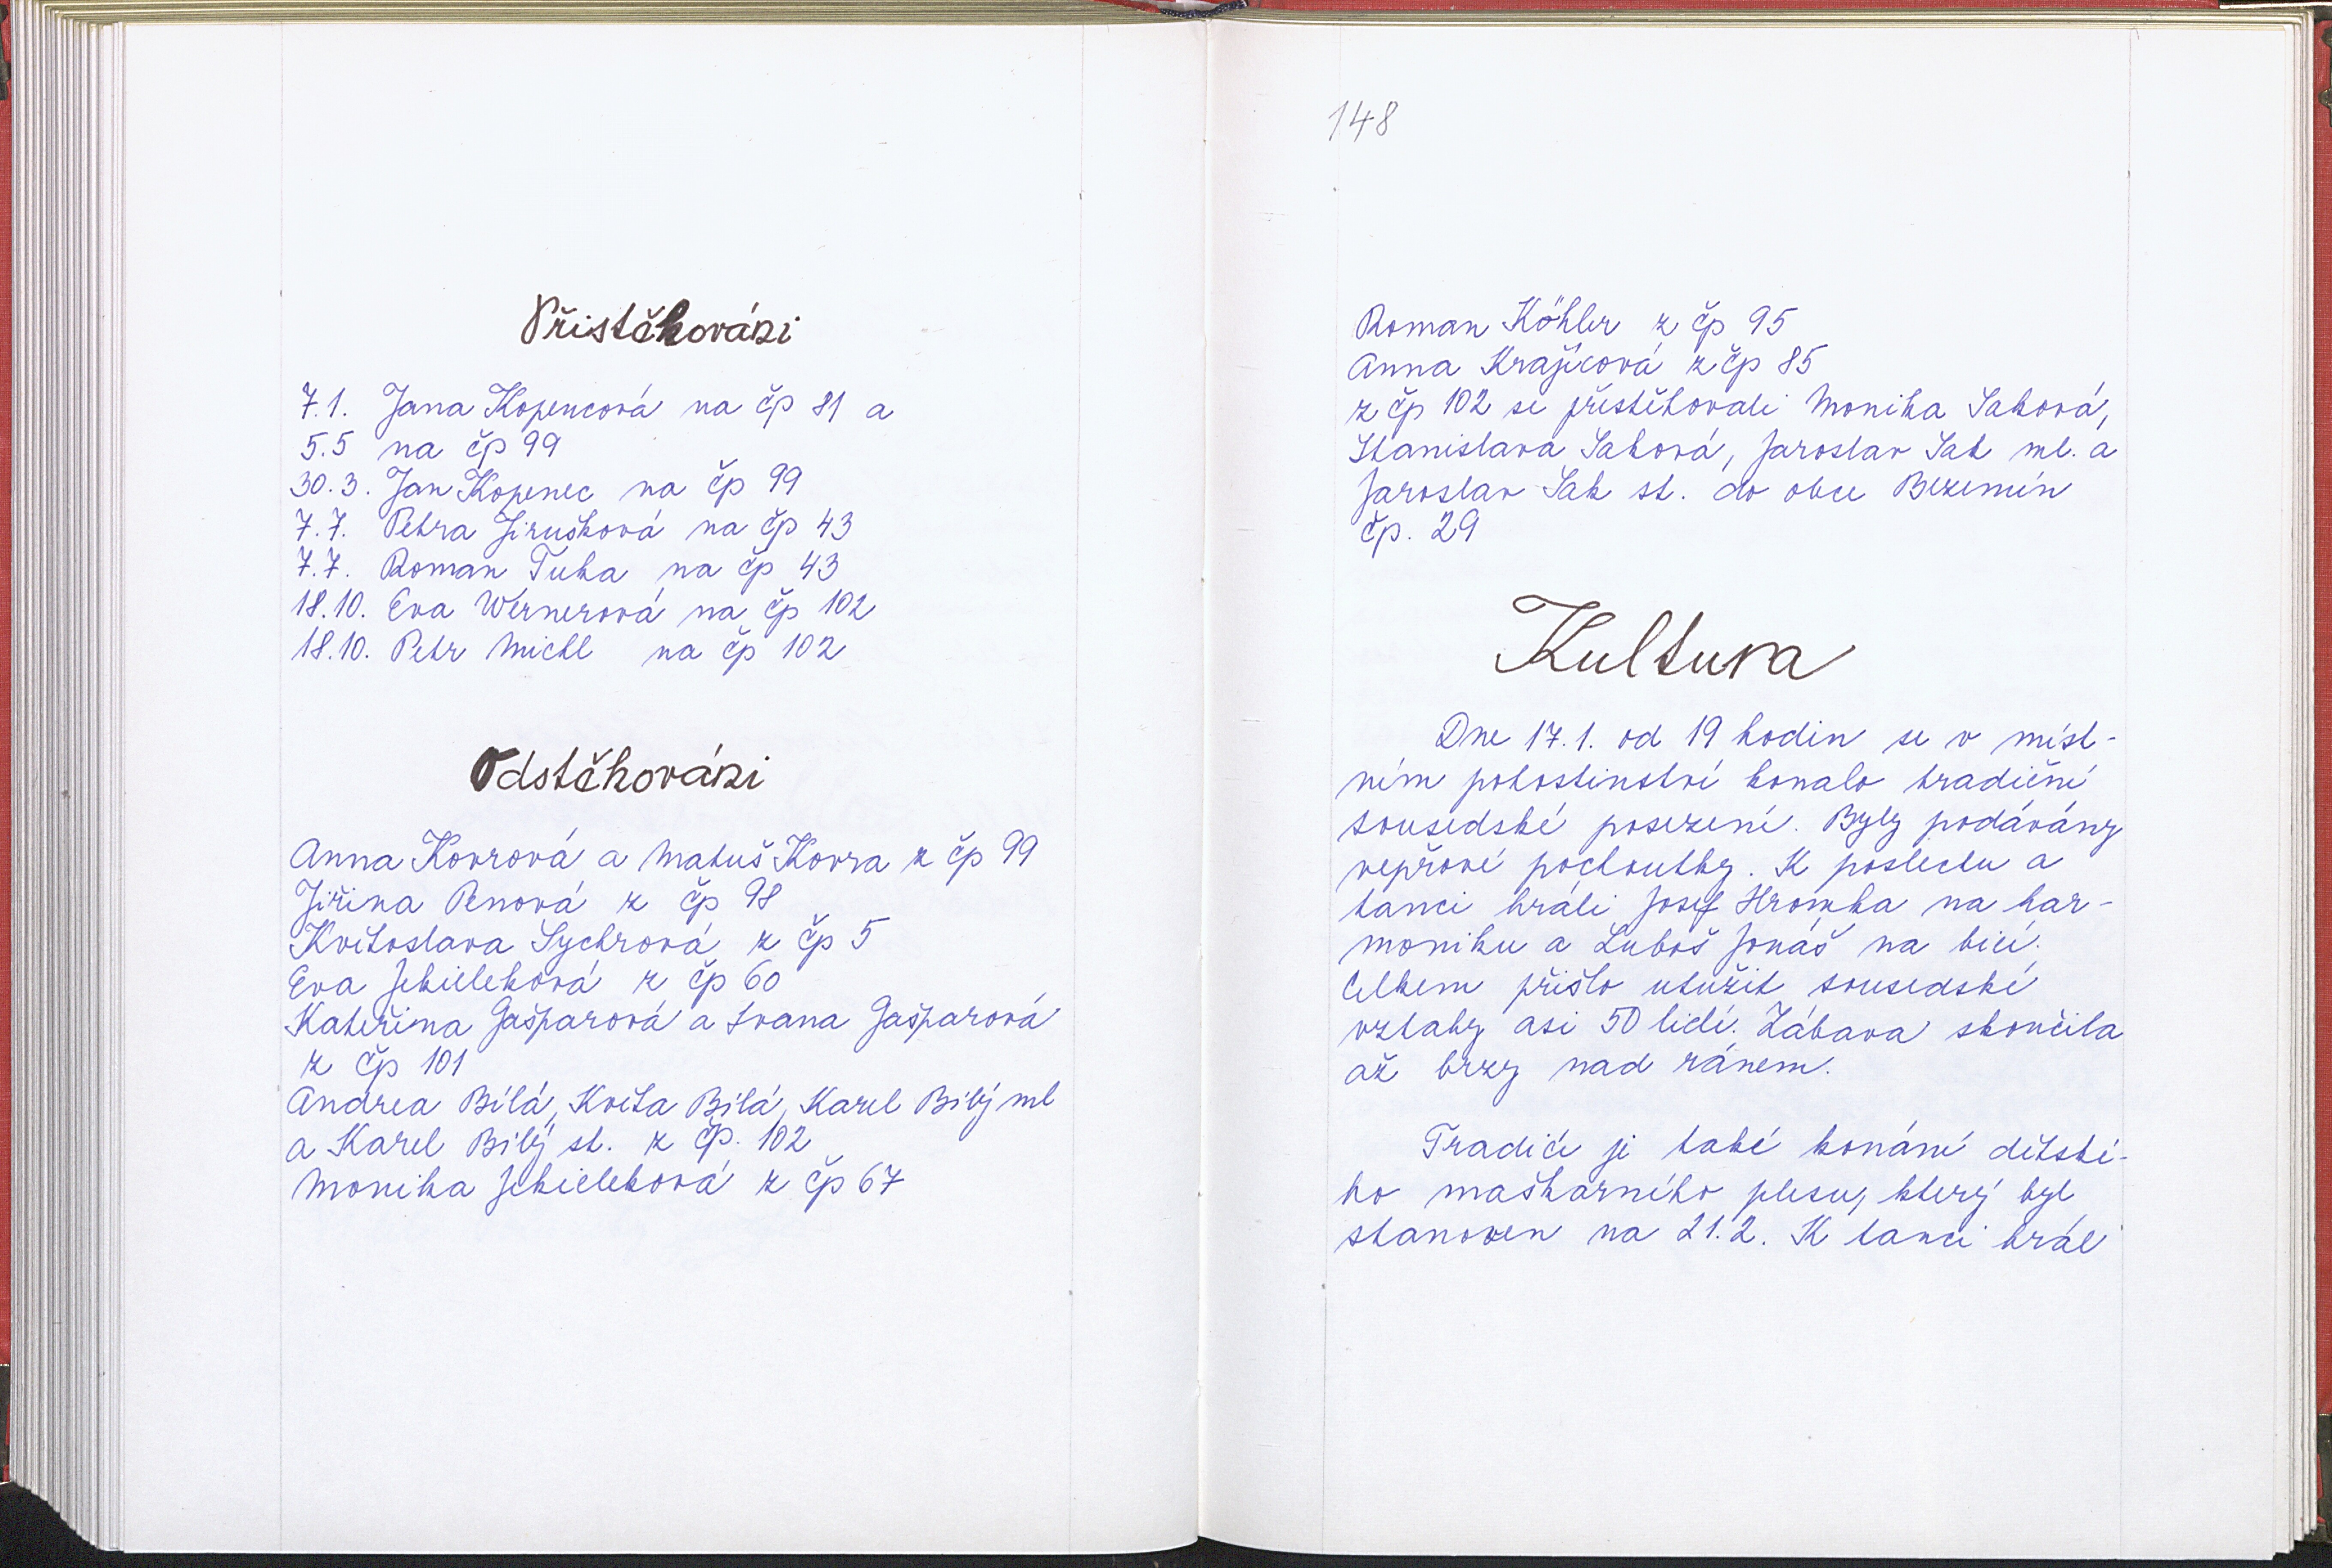 Přistěhováni
7.1. Jana Kopencová na čp 81 a
5.5 na čp 99
30.3. Jan Kopenec na čp 99
7.7. Petra Jirušková na čp 43
7.7. Roman Tuka na čp 43
18.10. Eva Wernerová na čp 102
18.10. Petr Michl na čp 102
Odstěhováni
Anna Kovrová a Matuš Kovra z čp 99
Jiřina Penová z čp 98
Květoslava Sychrová z čp 5
Eva Jekieleková z čp 60
Kateřina Gašparová a Ivana Gašparová
z čp 101
Andrea Bílá, Květa Bílá, Karel Bílý ml
a Karel Bílý st. z čp. 102
Monika Jekieleková z čp 67
148
Roman Köhler z čp 95
Anna Krajícová z čp 85
z čp 102 se přestěhovali Monika Saková,
Stanislava Saková, Jaroslav Sak ml. a
Jaroslav Sak st. do obce Bezemín
čp. 29
Kultura
Dne 17.1. od 19 hodin se v míst-
ním pohostinství konalo tradiční
sousedské posezení. Byly podávány
vepřové pochoutky. K poslechu a
tanci hráli Josef Hromka na har-
moniku a Luboš Jonáš na bicí.
Celkem přišlo utužit sousedské
vztahy asi 50 lidí. Zábava skončila
až brzy nad ránem.
Tradicí je také konání dětské-
ho maškarního plesu, který byl
stanoven na 21.2. K tanci hrál